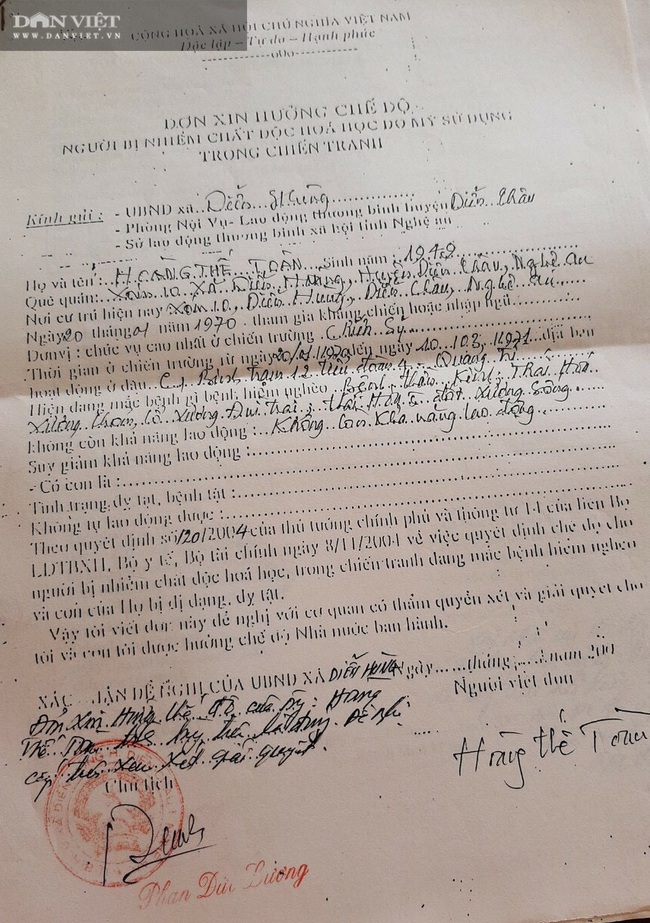 DÂN VIỆT
WWW.DANVIET.VN
CỘNG HOÀ XÃ HỘI CHỦ NGHĨA VIỆT NAM
Độc lập – Tự do – Hạnh phúc
-----------o0o-----------
ĐƠN XIN HƯỞNG CHẾ ĐỘ
NGƯỜI BỊ NHIỄM CHẤT ĐỘC HOÁ HỌC DO MỸ SỬ DỤNG
TRONG CHIẾN TRANH
Kính gửi : - UBND xã Diễn Hùng
- Phòng Nội Vụ- Lao động thương binh huyện Diễn Châu
- Sở lao động thương binh xã hội tỉnh Nghệ an
Họ và tên : HOÀNG THẾ TOÀN Sinh năm : 1948
Quê quán: Xóm 10 Xã Diễn Hùng, Huyện Diễn Châu, Nghệ an
Nơi cư trú hiện nay Xóm 10, Diễn Hùng, Diễn Châu, Nghệ an
Ngày 20 tháng 01 năm 1970 tham gia kháng chiến hoặc nhập ngũ
Đơn vị : chức vụ cao nhất ở chiến trường Chiến sỹ
Thời gian ở chiến trường từ ngày đến ngày 10.103.1971 địa bàn
hoạt động ở đâu Binh trạm 12 tiểu đoàn 4 Quảng Trị
Hiện đang mắc bệnh gì bệnh hiểm nghèo Bệnh thần kinh, Thai Hoá
Xương đốt xương sống
không còn khả năng lao động : Không còn khả năng lao động
Suy giảm khả năng lao động :
- Có con là :
Tình trạng dỵ tật, bệnh tật :
Không tự lao động được :
Theo quyết định số 120/2004 của thủ tướng chính phủ và thông tư 14 của liên Bộ
LĐTBXH, Bộ y tế, Bộ tài chính ngày 8/11/2004 về việc quyết định chế độ cho
người bị nhiễm chất độc hoá học, trong chiến tranh đang mắc bệnh hiểm nghèo
và con của Họ bị dị dạng, dỵ tật.
Vậy tôi viết đơn này đề nghị với cơ quan có thẩm quyền xét và giải quyết cho
tôi và con tôi được hưởng chế độ Nhà nước ban hành.
XÁC NHẬN ĐỀ NGHỊ CỦA UBND XÃ DIỄN HÙNG Ngày.....tháng.....năm 200
Người viết đơn
Đơn xin hưởng chế độ của ông: Hoàng
Thế Toàn Đề nghị
cấp trên xem xét giải quyết.
Hoàng Thế Toàn
Chủ tịch
Phan Đức Lương